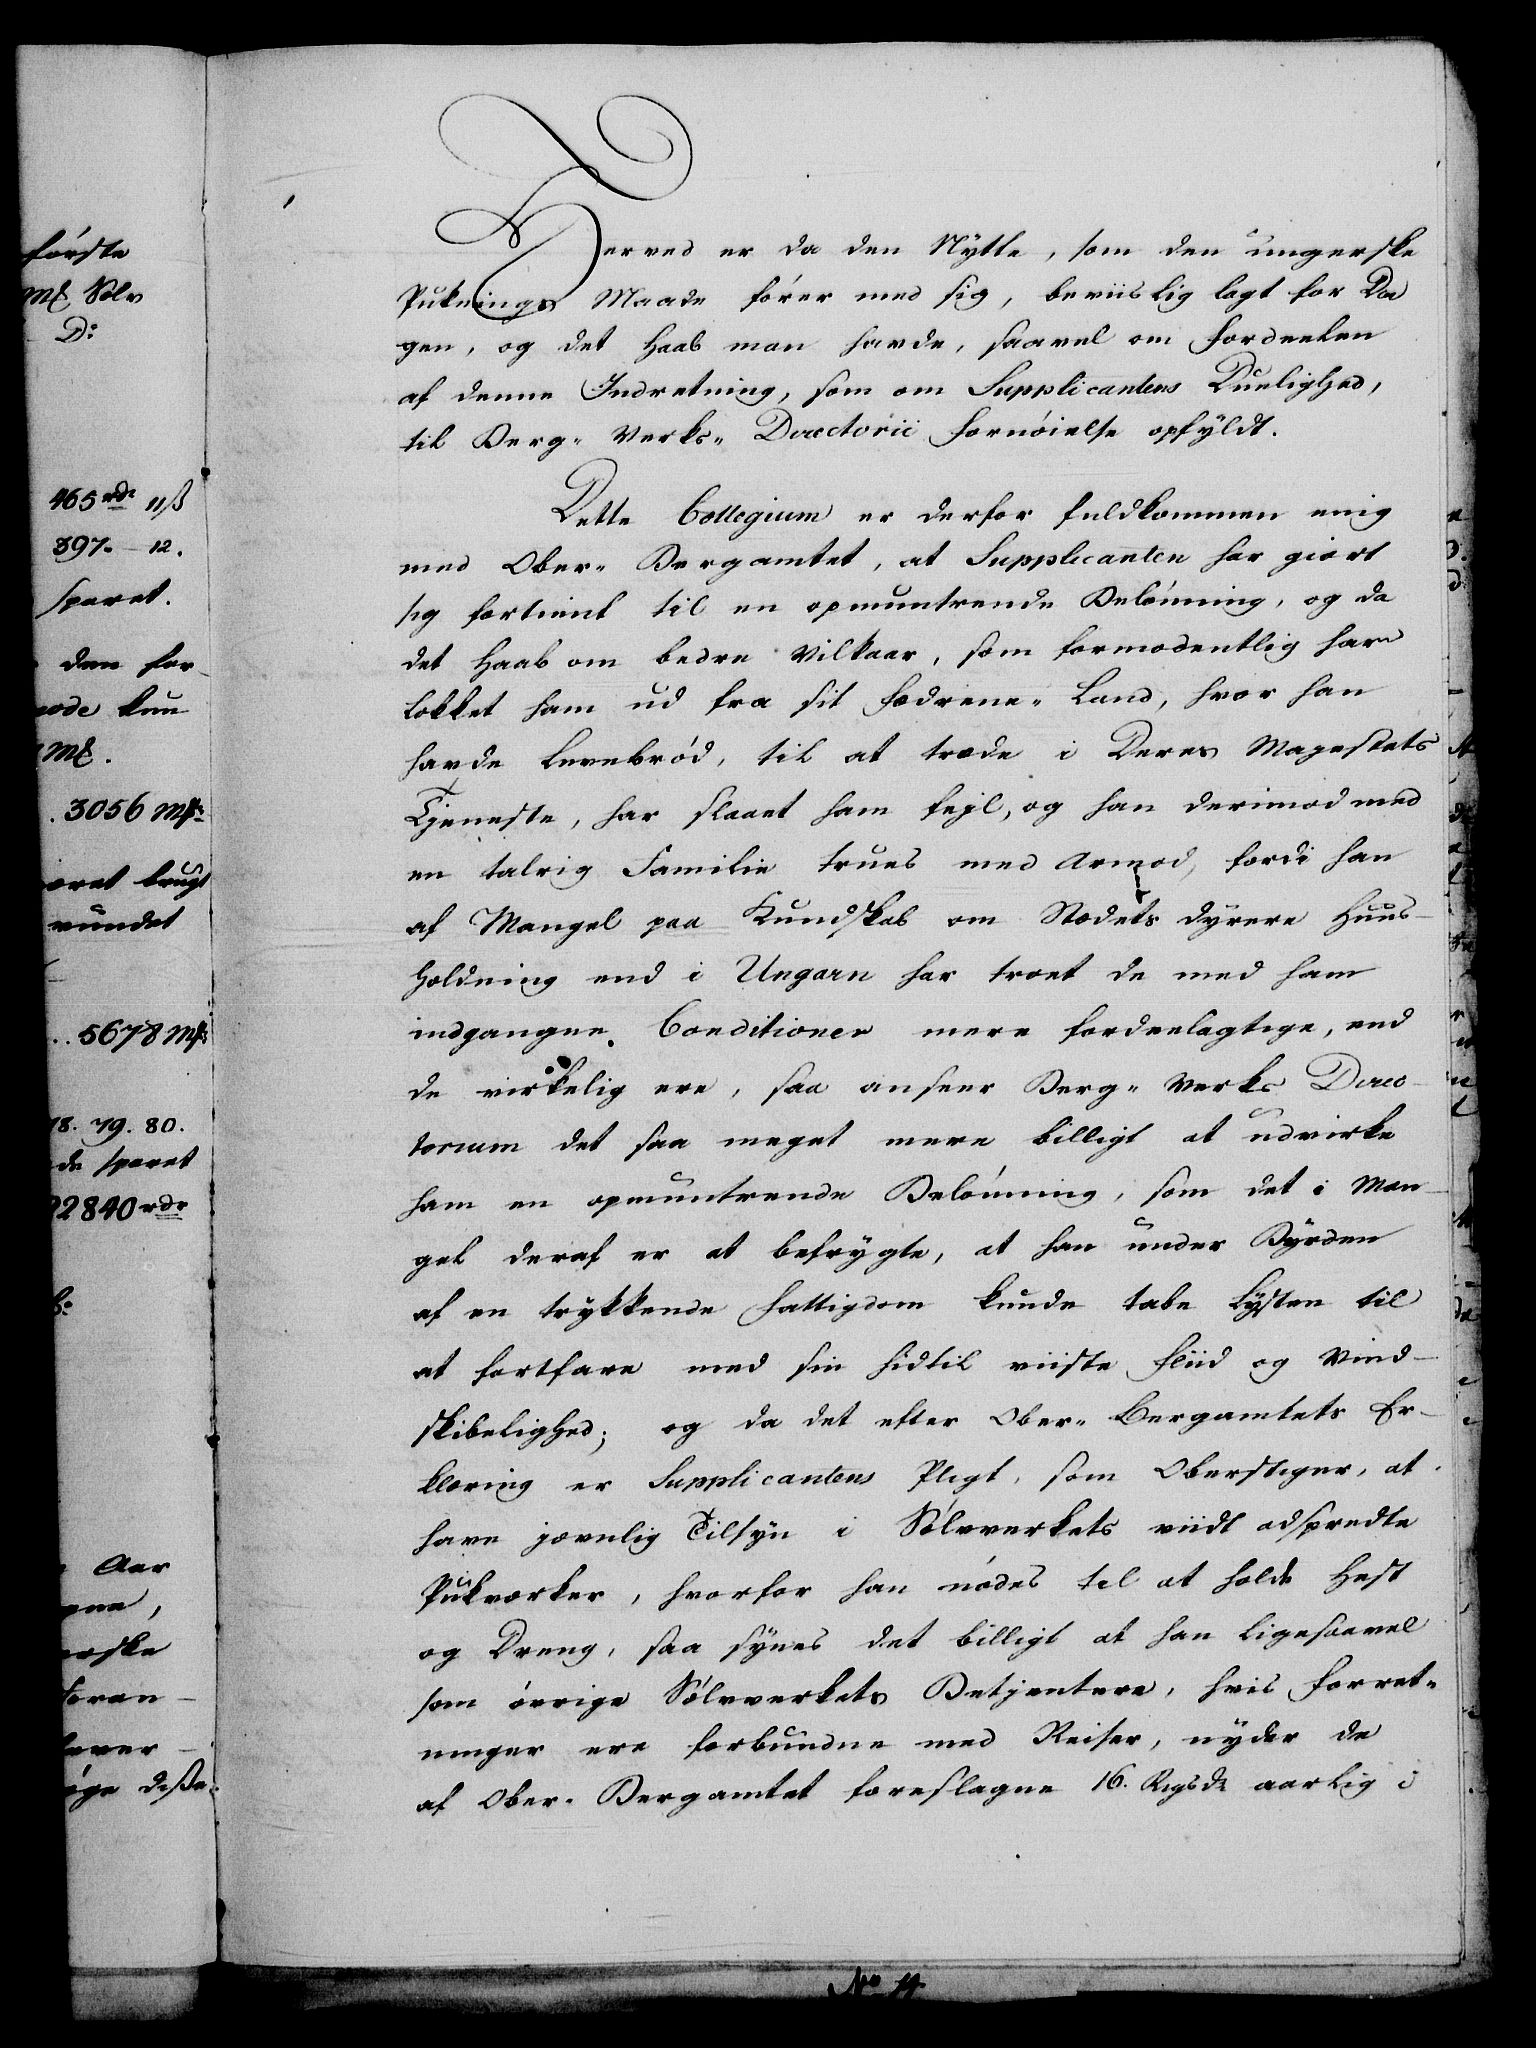 første
Mk Sølv
D:
465 rdr 11 ß
397. – 12.
sparet.
den for-
kun
Mk.
. 3056 Mk:
aret brugt
vundet
.. 5678 Mk:
78. 79. 80.
de sparet
22840 rdr
Aar
erske
foran-
øge diße
Herved er da den Nytte, som den ungerske
Puknings Maade fører med sig, beviislig lagt for Da
gen, og det Haab man havde, saavel om Fordeelen
af denne Indretning, som om Supplicantens Duelighed,
til Berg- Verks- Directorii Fornøielse opfyldt.
Dette Collegium er derfor fuldkommen enig
med Ober- Bergamtet, at Supplicanten har giort
sig fortient til en opmuntrende Belønning, og da
det Haab om bedre Vilkaar, som formodentlig har
lokket ham ud fra sit Fædrene- Land, hvor han
havde Levebrød, til at træde i Deres Majestets
Tjeneste, har slaaet ham fejl, og han derimod med
en talrig Familie trues med Armod, fordi han
af Mangel paa Kundskab om Stædets dyrere Huus-
holdning end i Ungarn har troet de med ham
indgangne Conditioner mere fordeelagtige, end
de virkelig ere, saa anseer Berg- Verks Direc-
torium det saa meget mere billigt at udvirke
ham en opmuntrende Belønning, som det i Man-
gel deraf er at befrygte, at han under Byrden
af en trykkende Fattigdom kunde tabe Lysten til
at fortfare med sin hidtil viiste Fliid og Vind-
skibelighed; og da det efter Ober- Bergamtets Er-
klæring er Supplicantens Pligt, som Oberstiger, at
have jævnlig Tilsyn i Sølvverkets viidt adspredte
Pukværker, hvorfor han nødes til at holde Hest
og Dreng, saa synes det billigt at han ligesaavel
som øvrige Sølvverkets Betjentere, hvis Forret-
ninger ere forbundne med Reiser, nyder de
af Ober- Bergamtet foreslagne 16. Rigsdr aarlig i
No 14.